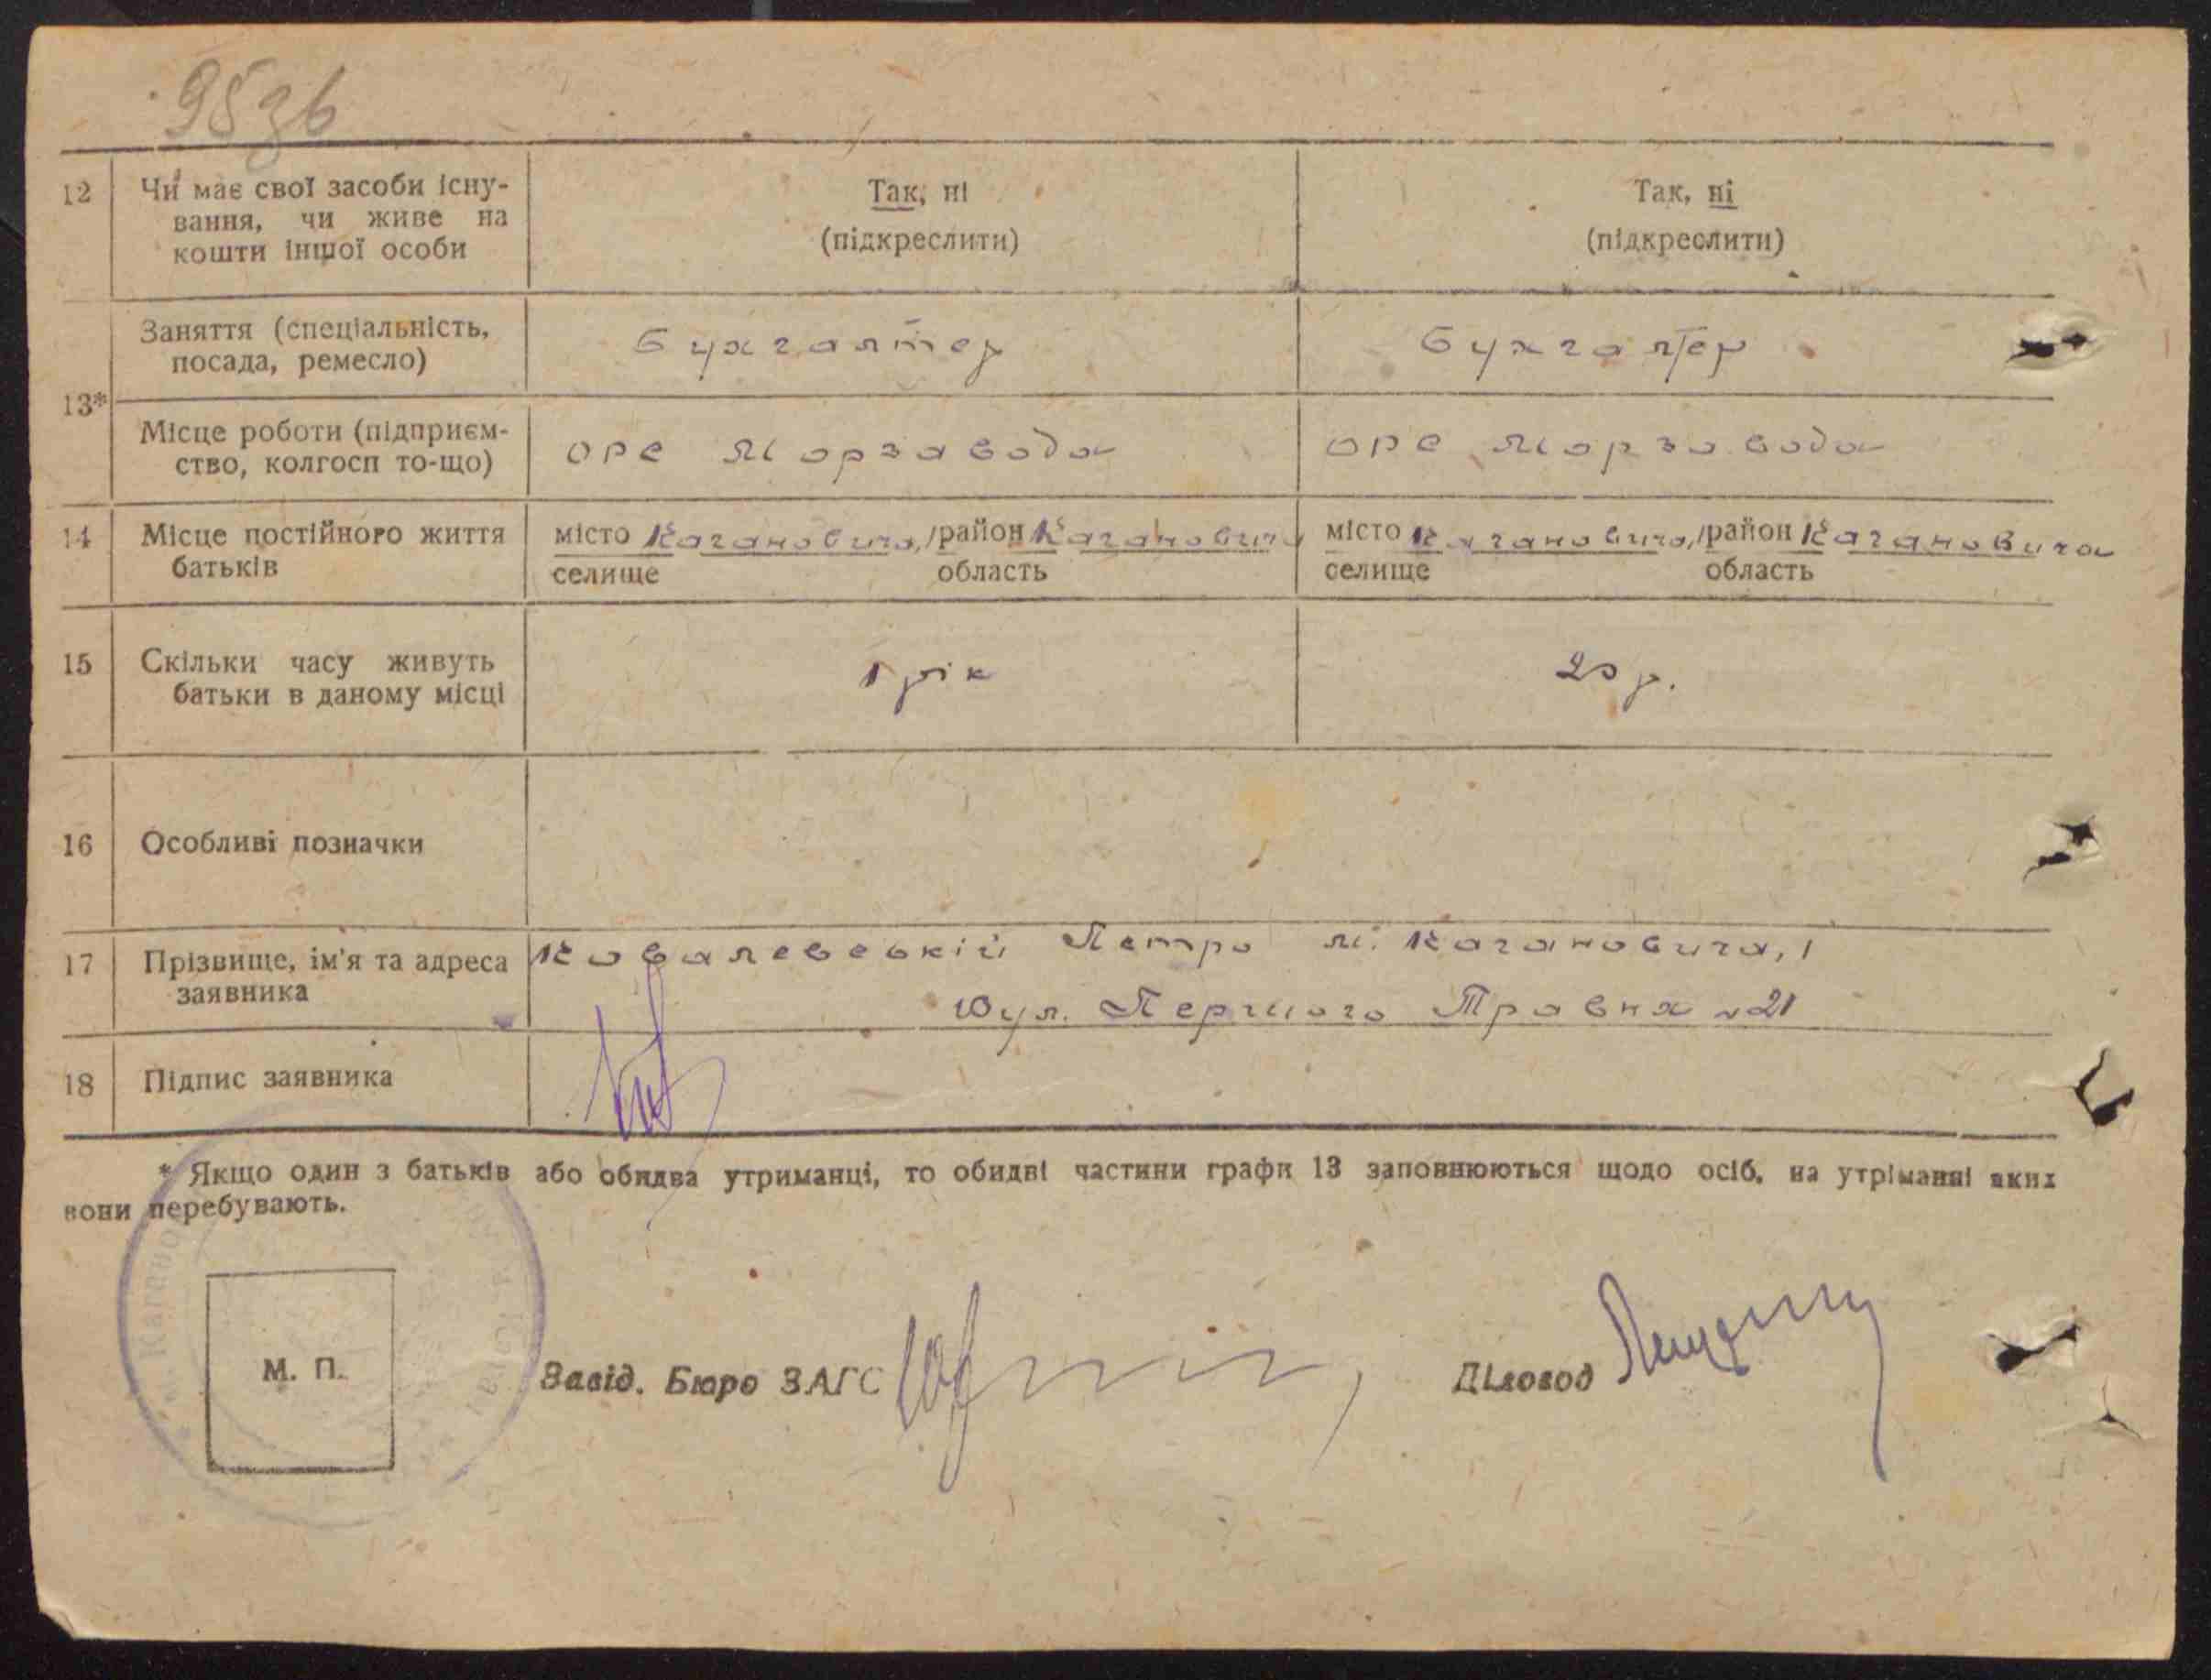 95зв
12 Чи має свої засоби існу- Так, ні Так, ні
вання, чи живе на (підкреслити) (підкреслити)
кошти іншої особи
Заняття (спеціальність, бухгалтер бухгалтер
посада, ремесло)
13*
Місце роботи (підприєм- орс Морзавода орс Морзавода
ство, колгосп то-що)
14 Місце постійного життя місто Кагановича, район Кагановича місто Кагановича, район Кагановича
батьків селище область селище область
15 Скільки часу живуть 1 рік 20 р.
батьки в даному місці
16 Особливі позначки
17 Прізвище, ім'я та адреса Ковалевський Петро м. Кагановича, 1
заявника вул. Першого Травня №21
18 Підпис заявника
* Якщо один з батьків або обидва утриманці, то обидві частини графи 13 заповнюються щодо осіб, на утріманні яких
вони перебувають.
М. П. Завід. Бюро ЗАГС Діловод